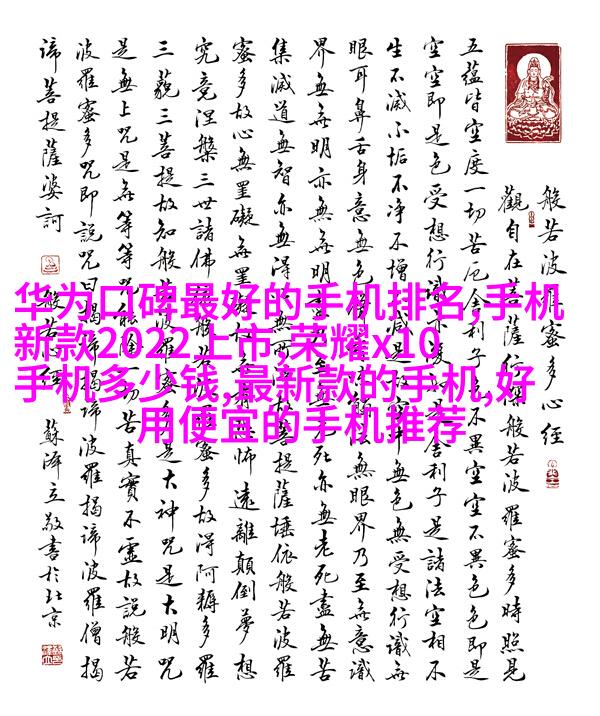 般若波羅蜜多心經
觀自在菩薩行深般若波羅蜜多時照見
五蘊皆空度一切苦厄舍利子色不異空空不異色色即是
空空即是色受想行識亦是舍利子是諸法空相不
生不滅不垢不净不增不減是故空中無色無受想行識無
眼耳鼻舌身意無色無眼界乃至無意識
界無無明亦無無明死亦無老死盡無苦
集滅道無智亦無得以無所菩提薩埵依般若波羅
蜜多故心無罣礙無罣礙怖遠離顛倒夢想
究竟涅槃三世諸佛蜜多故得阿耨多羅
三藐三菩提故知般是大神咒是大明咒
是無上咒是無等等咒能除一切苦真實不虛故說般若
波羅蜜多咒即說咒曰揭諦波羅揭諦波羅僧揭
諦菩提薩婆訶
般若心經
蘇澤立敬書於北京
华为口碑最好的手机排名,手机
新款2022上市,荣耀x10
手机多少钱,最新款的手机,好
用便宜的手机推荐